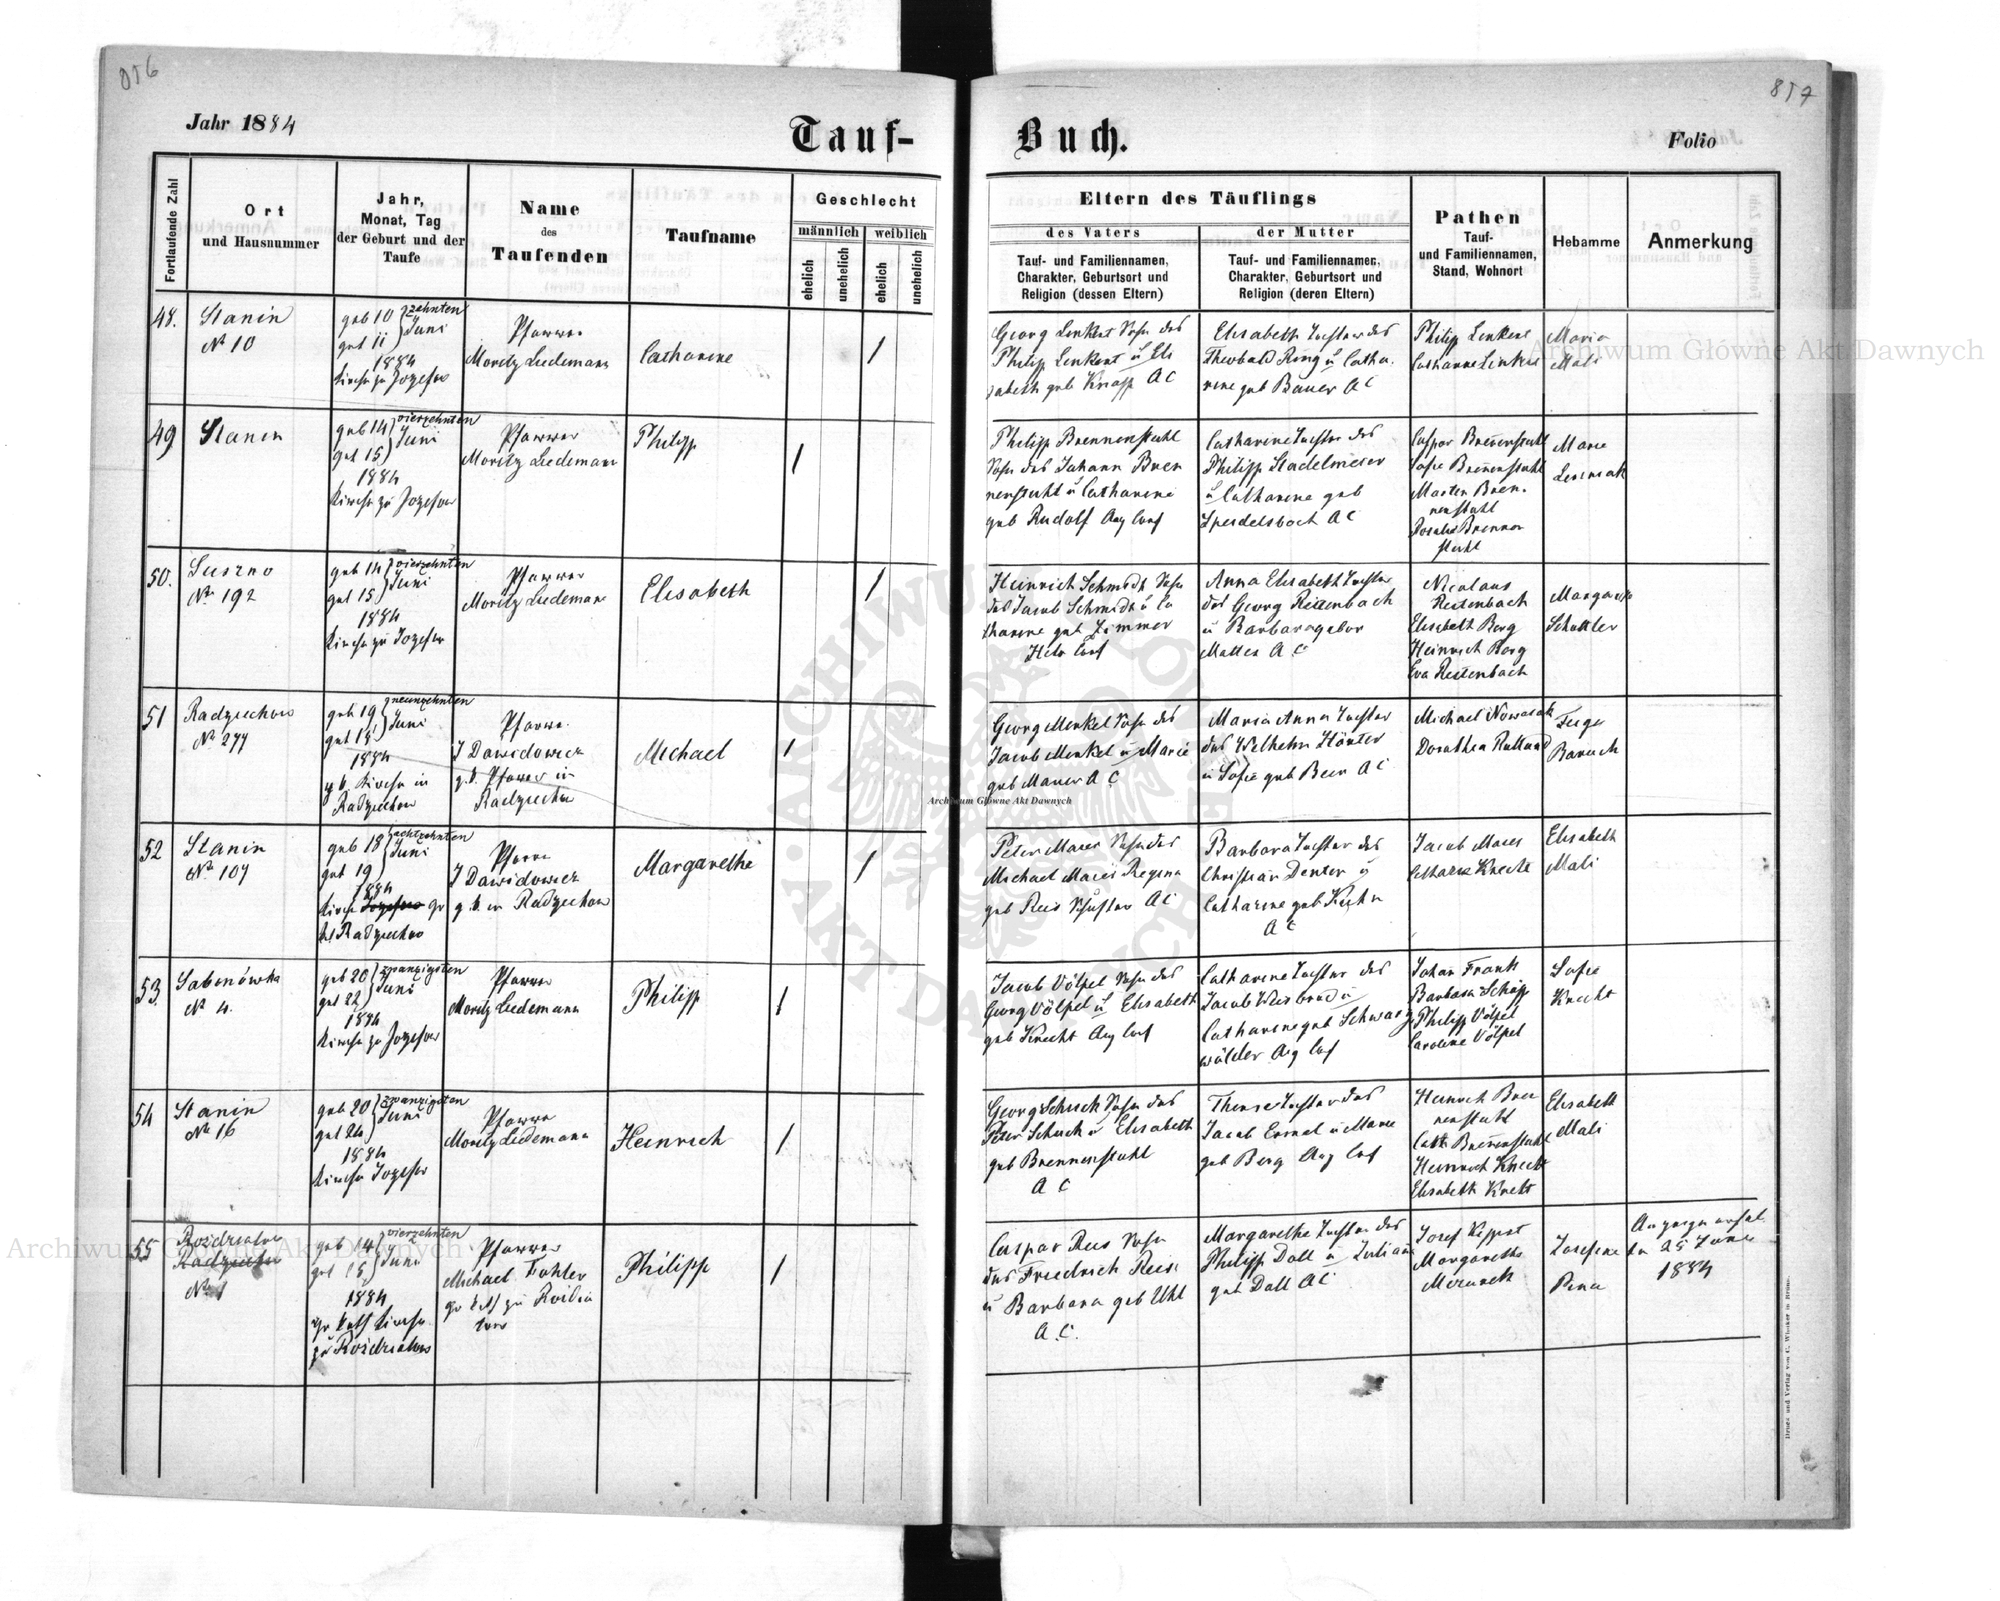 856
Jahr 1884
Tauf-
Fortlaufende Zahl
Ort
und Hausnummer
Jahr,
Monat, Tag
der Geburt und der
Taufe
Name
des
Taufenden
Taufname
Geschlecht
männlich
weiblich
ehelich
unehelich
ehelich
unehelich
48.
Stanin
No 10
geb 10 zehnten
get 11 Juni
1884
Kirche zu Jozefow
Pfarrer
Moritz Liedemann
Catharine
1
49
Stanin
geb 14 vierzehnten
get 15 Juni
1884
Kirche zu Jozefow
Pfarrer
Moritz Liedemann
Philipp
1
50.
Suszno
No 192
geb 14 vierzehnten
get 15 Juni
1884
Kirche zu Jozefow
Pfarrer
Moritz Liedemann
Elisabeth
1
51
Radziechow
No 277
geb 19 neunzehnten
get Juni
1884
Kirche in
Radziechow
Pfarrer
J Dawidowicz
g. k. Pfarrer in
Radziechow
Michael
1
52
Stanin
No 107
geb 18 achtzehnten
get 19 Juni
1884
Kirche Jozefow gr
kt Radziechow
Pfarrer
J Dawidowicz
g. k. in Radziechow
Margarethe
1
53.
Sabinówka
No 4.
geb 20 zwanzigsten
get 22 Juni
1884
Kirche zu Jozefow
Pfarrer
Moritz Liedemann
Philipp
1
54
Stanin
No 16
geb 20 zwanzigsten
get 24 Juni
1884
Kirche Jozefow
Pfarrer
Moritz Liedemann
Heinrich
1
55
Rozdzialow
Radziechow
No 1
geb 14 vierzehnten
get 15 Juni
1884
gr kath Kirche
zu Rozdzialow
Pfarrer
Michael
gr kath zu
Philipp
1
857
Buch.
Folio
Eltern des Täuflings
des Vaters
der Mutter
Tauf- und Familiennamen,
Charakter, Geburtsort und
Religion (dessen Eltern)
Tauf- und Familiennamen,
Charakter, Geburtsort und
Religion (deren Eltern)
Pathen
Tauf-
und Familiennamen,
Stand, Wohnort
Hebamme
Anmerkung
Georg Linkert Sohn des
Philip Linkert u Eli
sabeth geb Knapp AC
Elisabeth Tochter des
Theobald Ring u Catha.
rine geb Bauer AC
Philip Linkert
Catharine Linkert
Maria
Mali
Philipp Brennenstuhl
Sohn des Johann Bren
nenstuhl u Catharine
geb Rudolf Aug Conf
Catharine Tochter des
Philipp Stadelmeier
u Catharine geb
Speidelsbach AC
Caspar Breñenstuhl
Sofie Breñenstuhl
Martin Bren.
nenstuhl
Rosalia Brennen
stuhl
Marie
Lesniak
Heinrich Schmidt Sohn
des Jacob Schmidt u Ca
tharine geb Zimmer
Helv Conf
Anna Elisabeth Tochter
des Georg Reitenbach
u Barbara gebor
AC
Nicolaus
Reitenbach
Elisabeth Berg
Heinrich Berg
Eva Reitenbach
Margareth
Schaller
Georg Menkel Sohn des
Jacob Menkel u Marie
geb Maurer AC
Maria Anna Tochter
des Wilhelm Hörter
u Sofie geb Beer AC
Michael Nowacek
Dorothea Rulland
Feige
Baruch
Peter Maier Sohn des
Michael Maier Regina
geb Reis Schuster AC
Barbara Tochter des
Christian Denter u
Catharine geb Kuhn
AC
Jacob Maier
Catharine Knecht
Elisabeth
Mali
Jacob Völpel Sohn des
Georg Völpel u Elisabeth
geb Knecht Aug Conf
Catharine Tochter des
Jacob Weisbrod u
Catharine geb Schwarz
wälder Aug Conf
Johan Frank
Barbara Schapp
Philipp Völpel
Caroline Völpel
Sofie
Knecht
Georg Schuck Sohn des
Peter Schuck u Elisabeth
geb Brennenstuhl
AC
Therese Tochter des
Jacob u Marie
geb Berg Aug Conf
Heinrich Bren
nenstuhl
Cath Breñenstuhl
Heinrich Knecht
Elisabeth Knecht
Elisabeth
Mali
Caspar Reis Sohn
des Friedrich Reis
u Barbara geb Uhl
A.C.
Margarethe Tochter des
Philipp Doll u Juliane
geb Doll AC
Josef
Margarethe
Josefine
25 Juni
1884
Druck und Verlag von C. Winiker in Brünn.
Archiwum Główne Akt Dawnych
Archiwum Główne Akt Dawnych
Archiwum Główne Akt Dawnych
ARCHIWUM GŁÓWNE AKT DAWNYCH